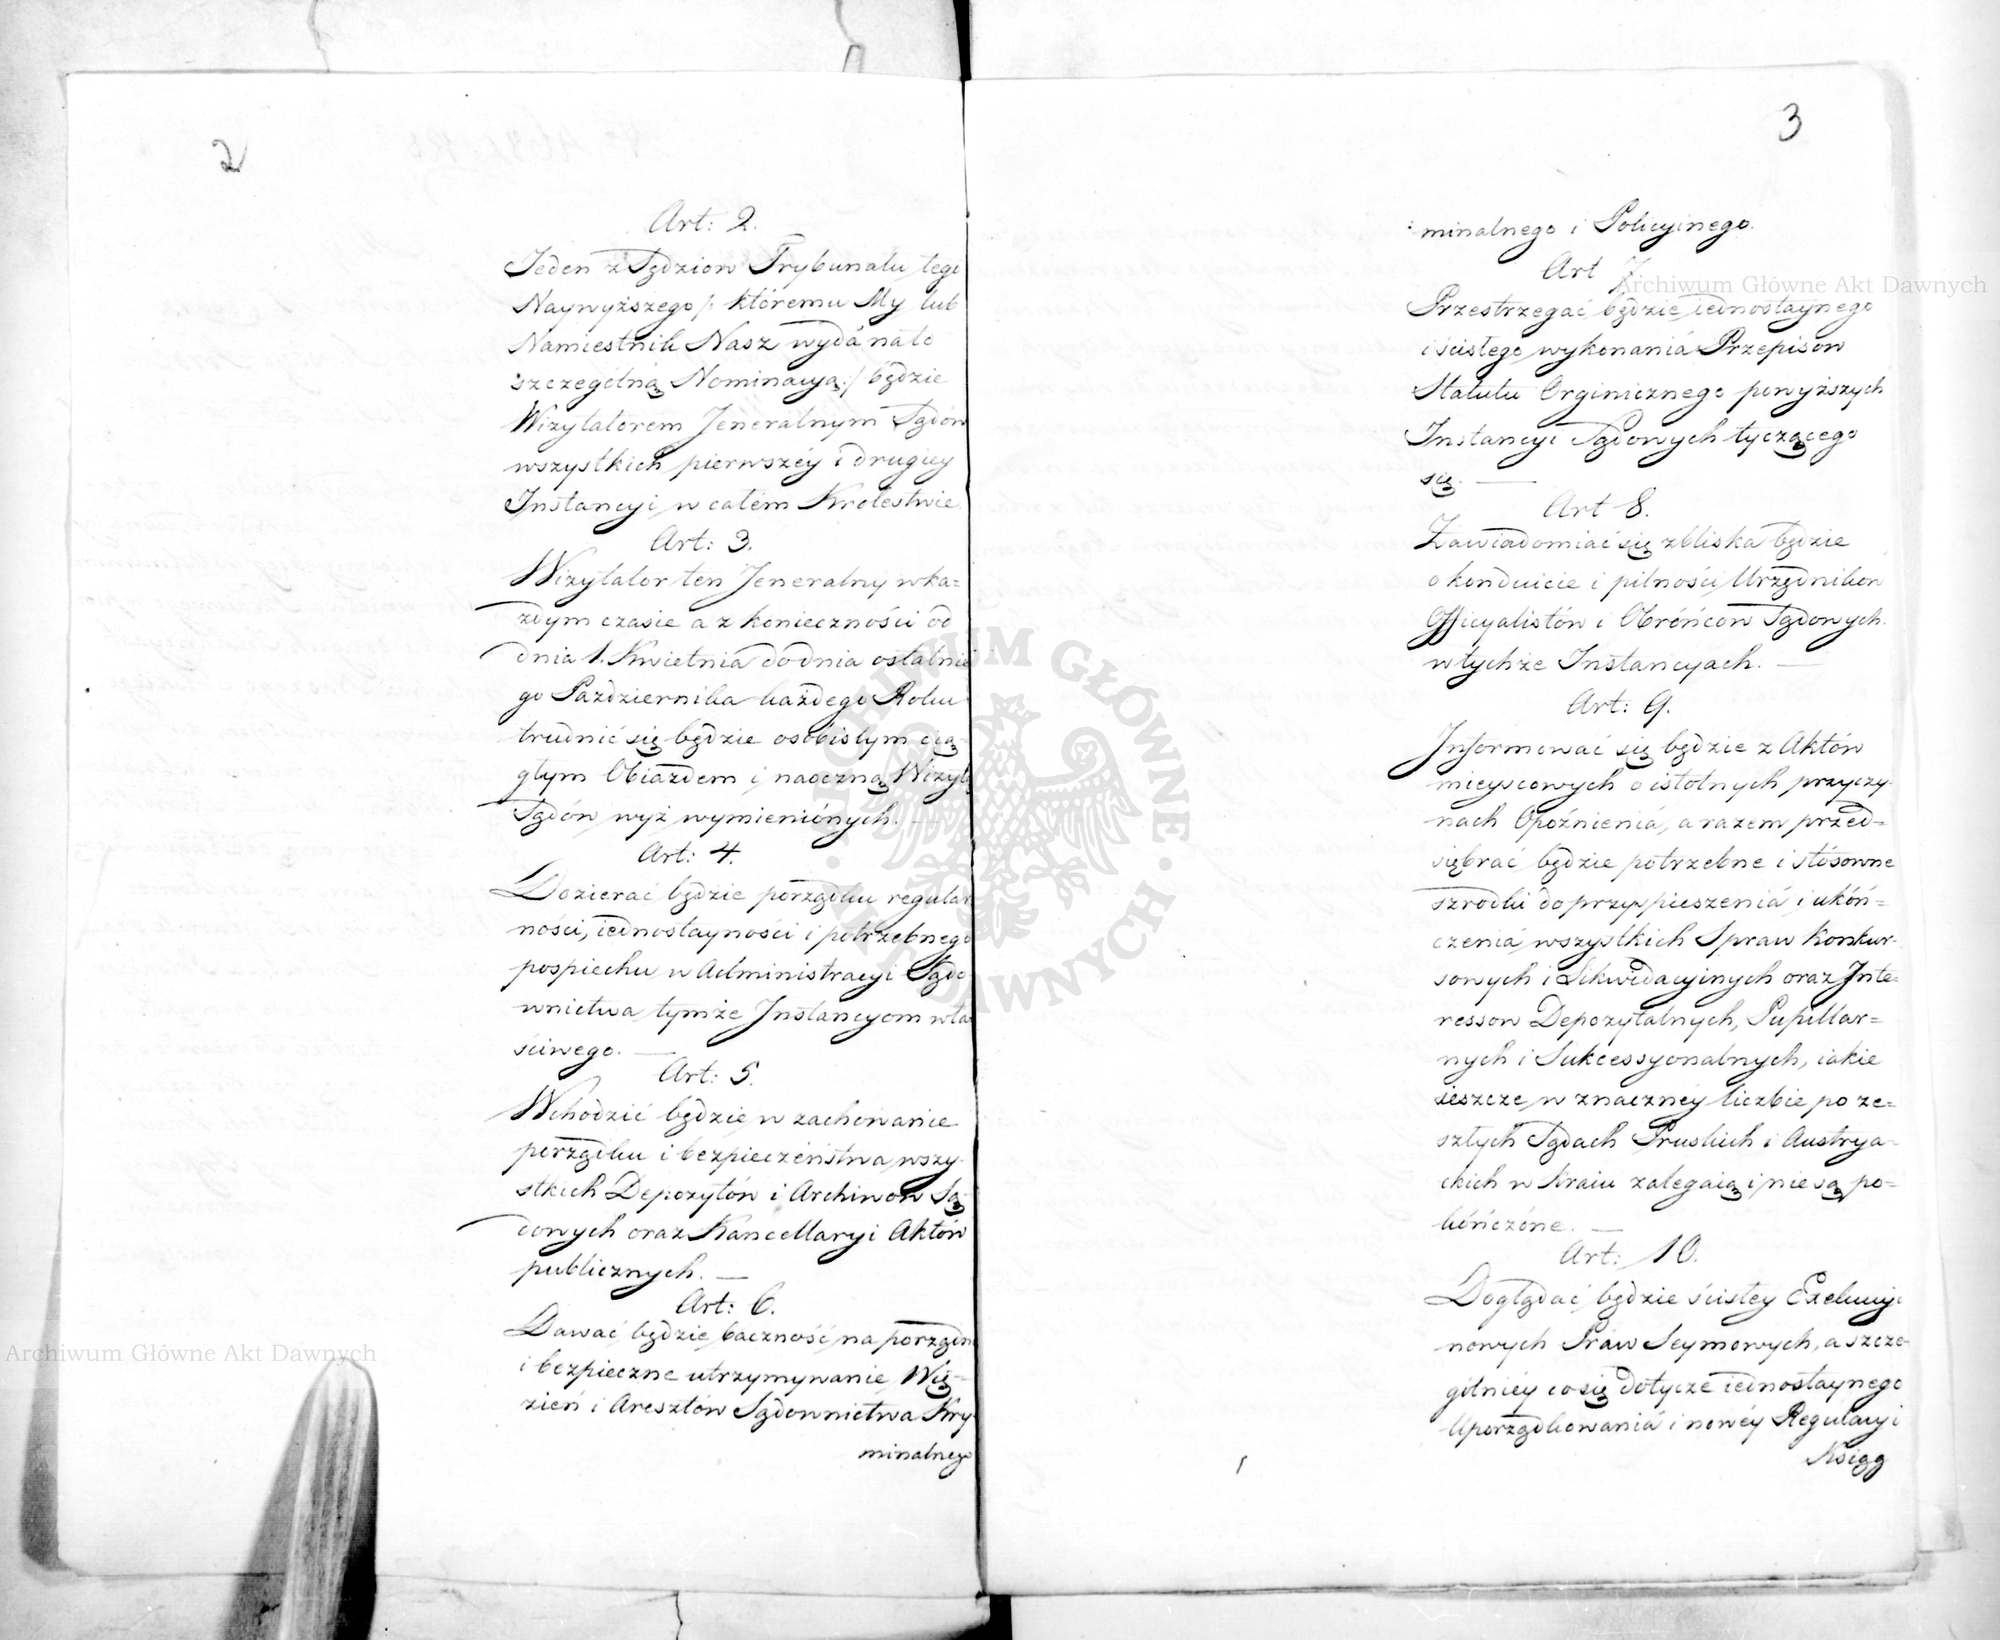 2
Art: 2.
Jeden z Sędziow Trybunału tego
Naywyższego /: któremu My lub
Namiestnik Nasz wyda na to
szczególną Nominacyą :/ będzie
Wizytatorem Jeneralnym Sądów
wszystkich pierwszéy i drugiey
Instancyi w całém Krolestwie.
Art: 3.
Wizytator ten Jeneralny w ka=
żdym czasie a z konieczności od
dnia 1. Kwietnia do dnia ostatnie
go Pazdziernika każdego Roku
trudnić się będzie osobistym cią=
głym Obiazdem i naoczną Wizytą
Sądów wyż wymienionych. —
Art: 4.
Dozierać będzie porządku regular
ności, iednostayności i potrzebnego
pospiechu w Administracyi Sądo
wnictwa tymże Instancyom wła
ściwego. —
Art: 5.
Wchodzić będzie w zachowanie
porządku i bezpieczeństwa wszy=
stkich Depozytów i Archiwow Są=
dowych oraz Kancellaryi Aktów
publicznych. —
Art: 6.
Dawać będzie baczność na porządne
i bezpieczne utrzymywanie Wię=
zień i Aresztów Sądownictwa Kry
minalnego
3
minalnego i Policyinego.
Art 7.
Przestrzegać będzie iednostaynego
i ścisłego wykonania Przepisow
Statutu Orginicznego powyższych
Instancyi Sądowych tyczącego
się. —
Art 8.
Zawiadomiać się zbliska będzie
o konduicie i pilności Urzędnikow
Officyalistów i Obrońcow Sądowych
w tychże Instancyach. —
Art: 9.
Informować się będzie z Aktów
mieyscowych o istotnych przyczy=
nach Opóźnienia, a razem przed=
siębrać będzie potrzebne i stósowne
szrodki do przyspieszenia i ukóń=
czenia wszystkich Spraw Konkur=
sowych i Likwidacyinych oraz Inte=
ressow Depozytalnych, Pupillar=
nych i Sukcessyonalnych, iakie
ieszcze w znacznéy liczbie po ze=
szłych Sądach Pruskich i Austrya=
ckich w Kraiu zalegaią i nie są po=
kończone. —
Art: 10.
Doglądać będzie ścisłey Exekucyi
nowych Praw Seymowych, a szcze=
gólniéy co się dotycze iednostaynego
Uporządkowania i nowéy Regulacyi
Ksiąg
Archiwum Główne Akt Dawnych
Archiwum Główne Akt Dawnych
ARCHIWUM GŁÓWNE AKT DAWNYCH